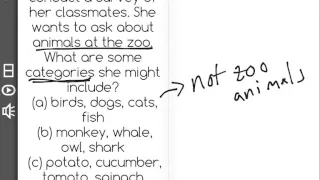 conduct a survey of
her classmates. She
wants to ask about
animals at the zoo.
What are some
categories she might
include?
(a) birds, dogs, cats,
fish
(b) monkey, whale,
owl, shark
(c) potato, cucumber,
tomato, spinach
not zoo
animals